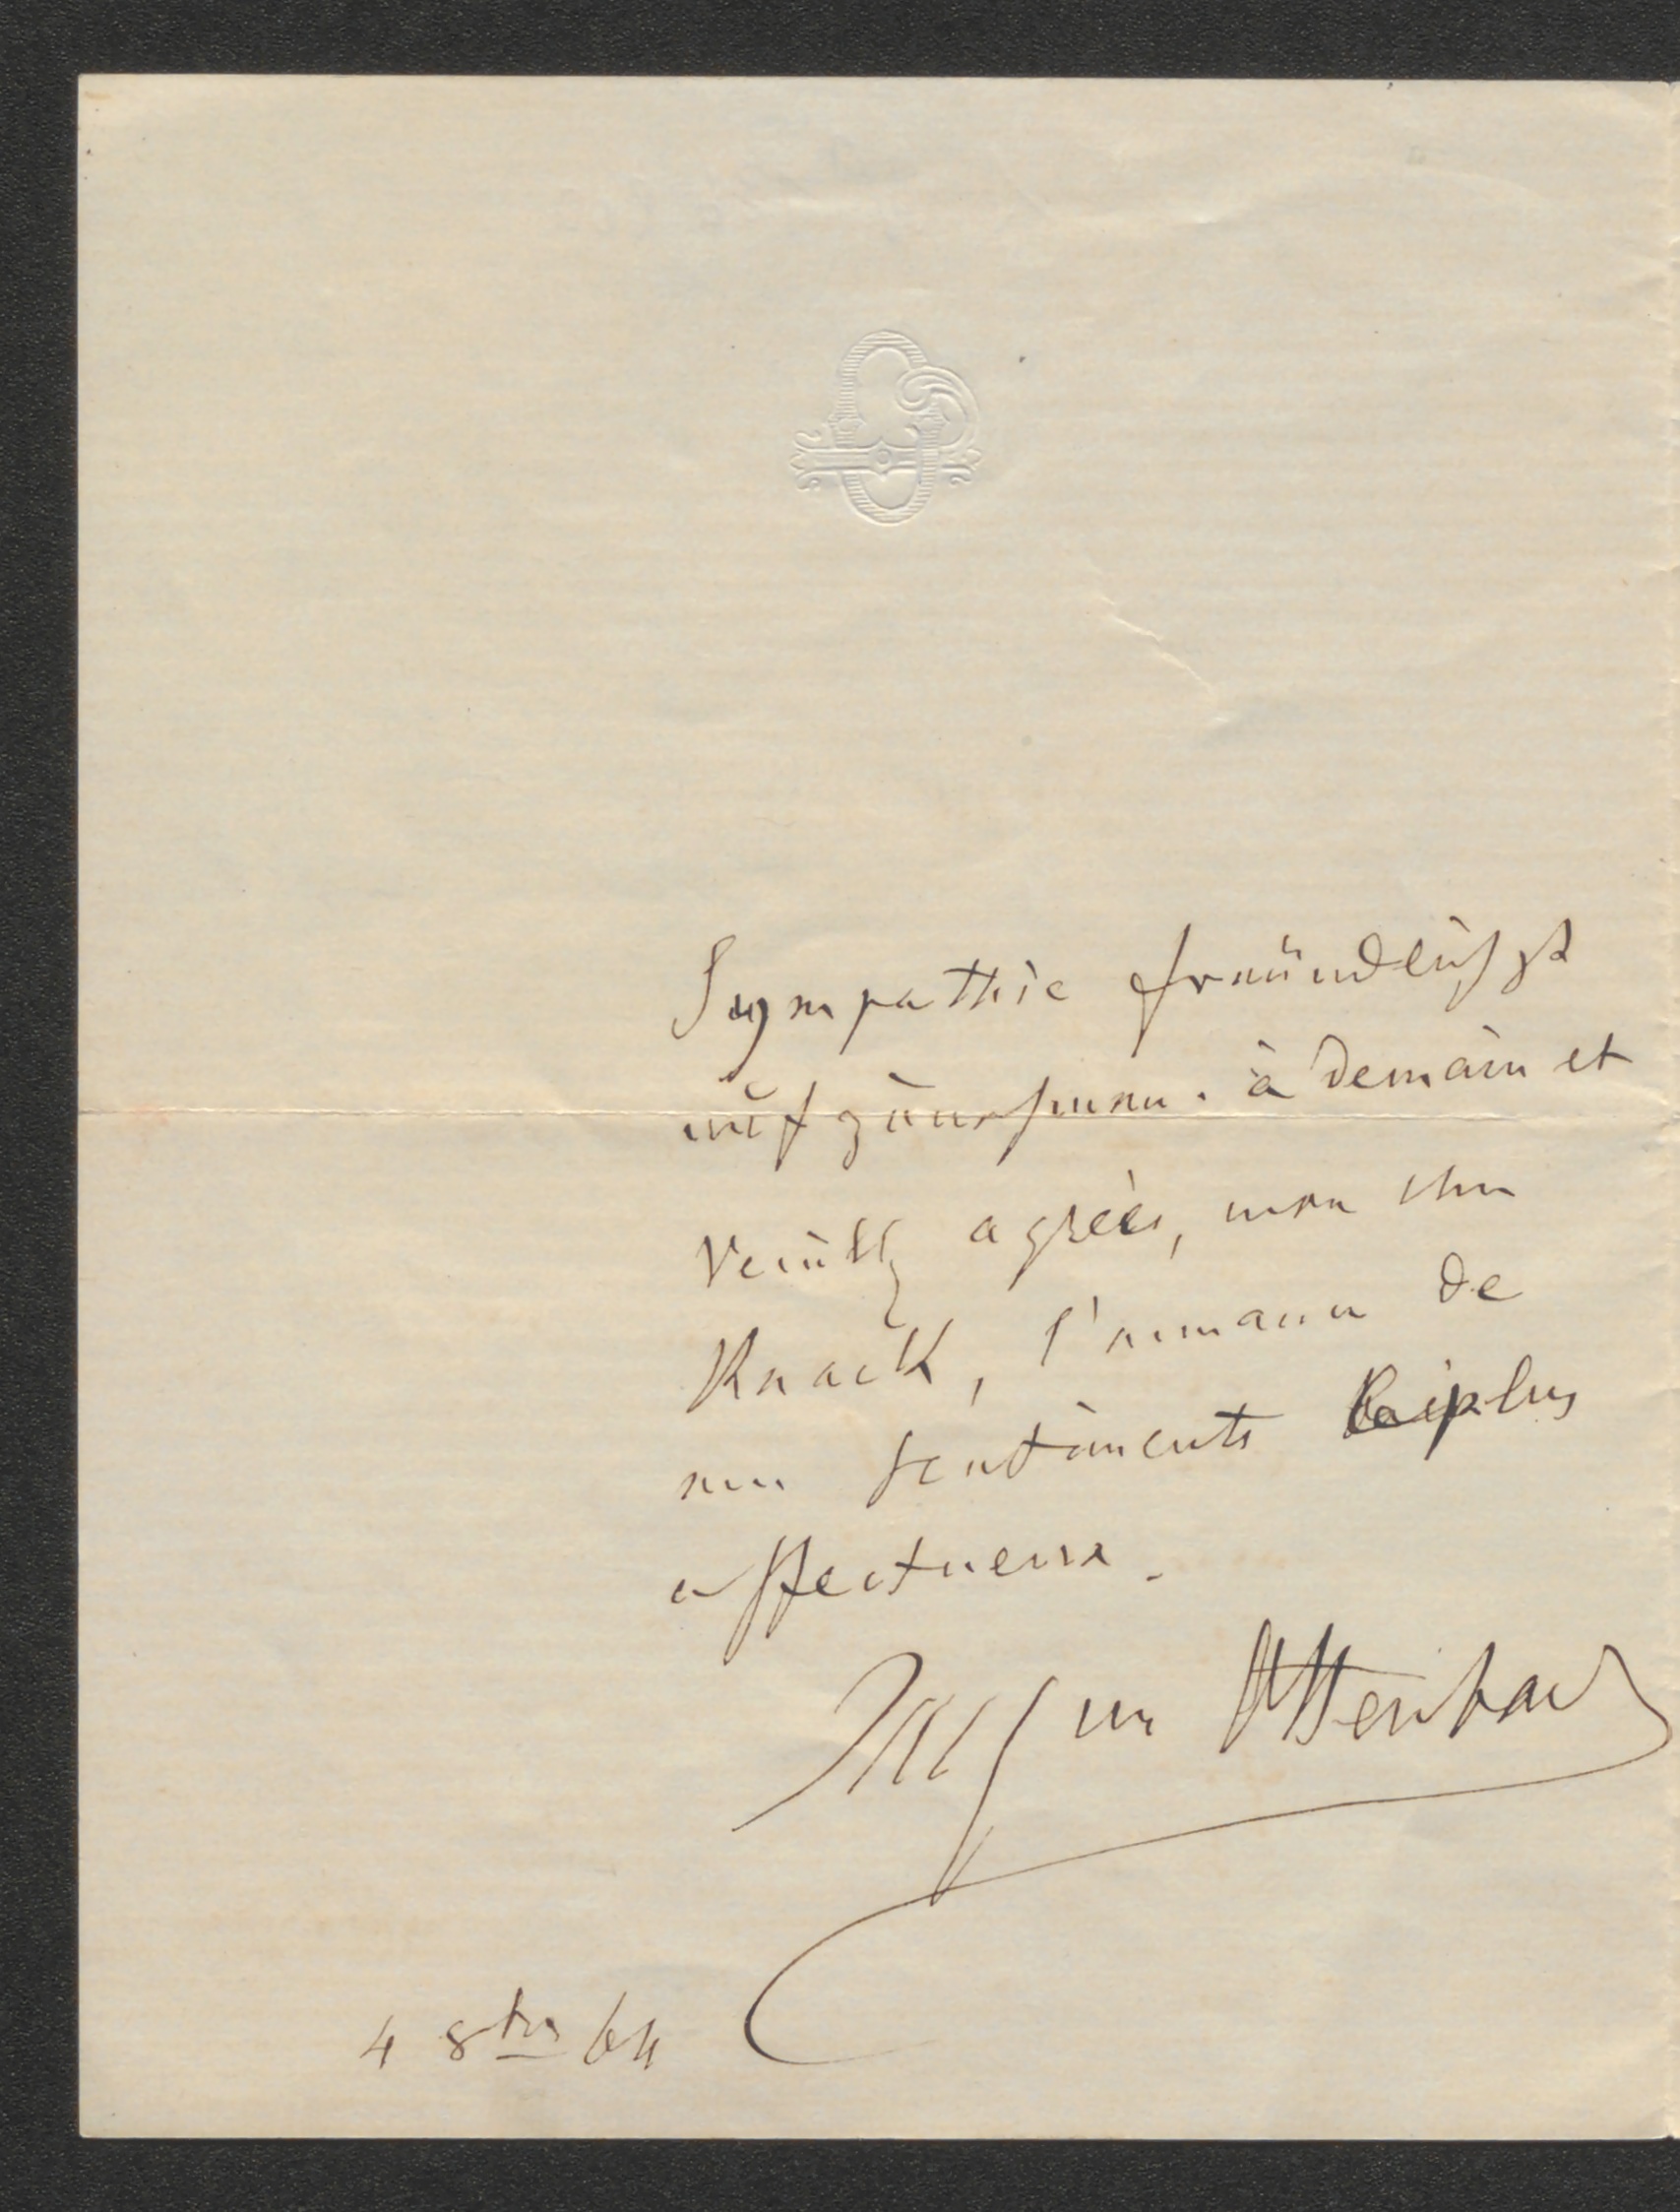 Sympathie freundlichst
aufzunehmen. à demain et
Veuillez agréer, mon cher
Knack, l'
mes sentiments les plus
affectueux.
Jacques Offenbach
4 8bre 64